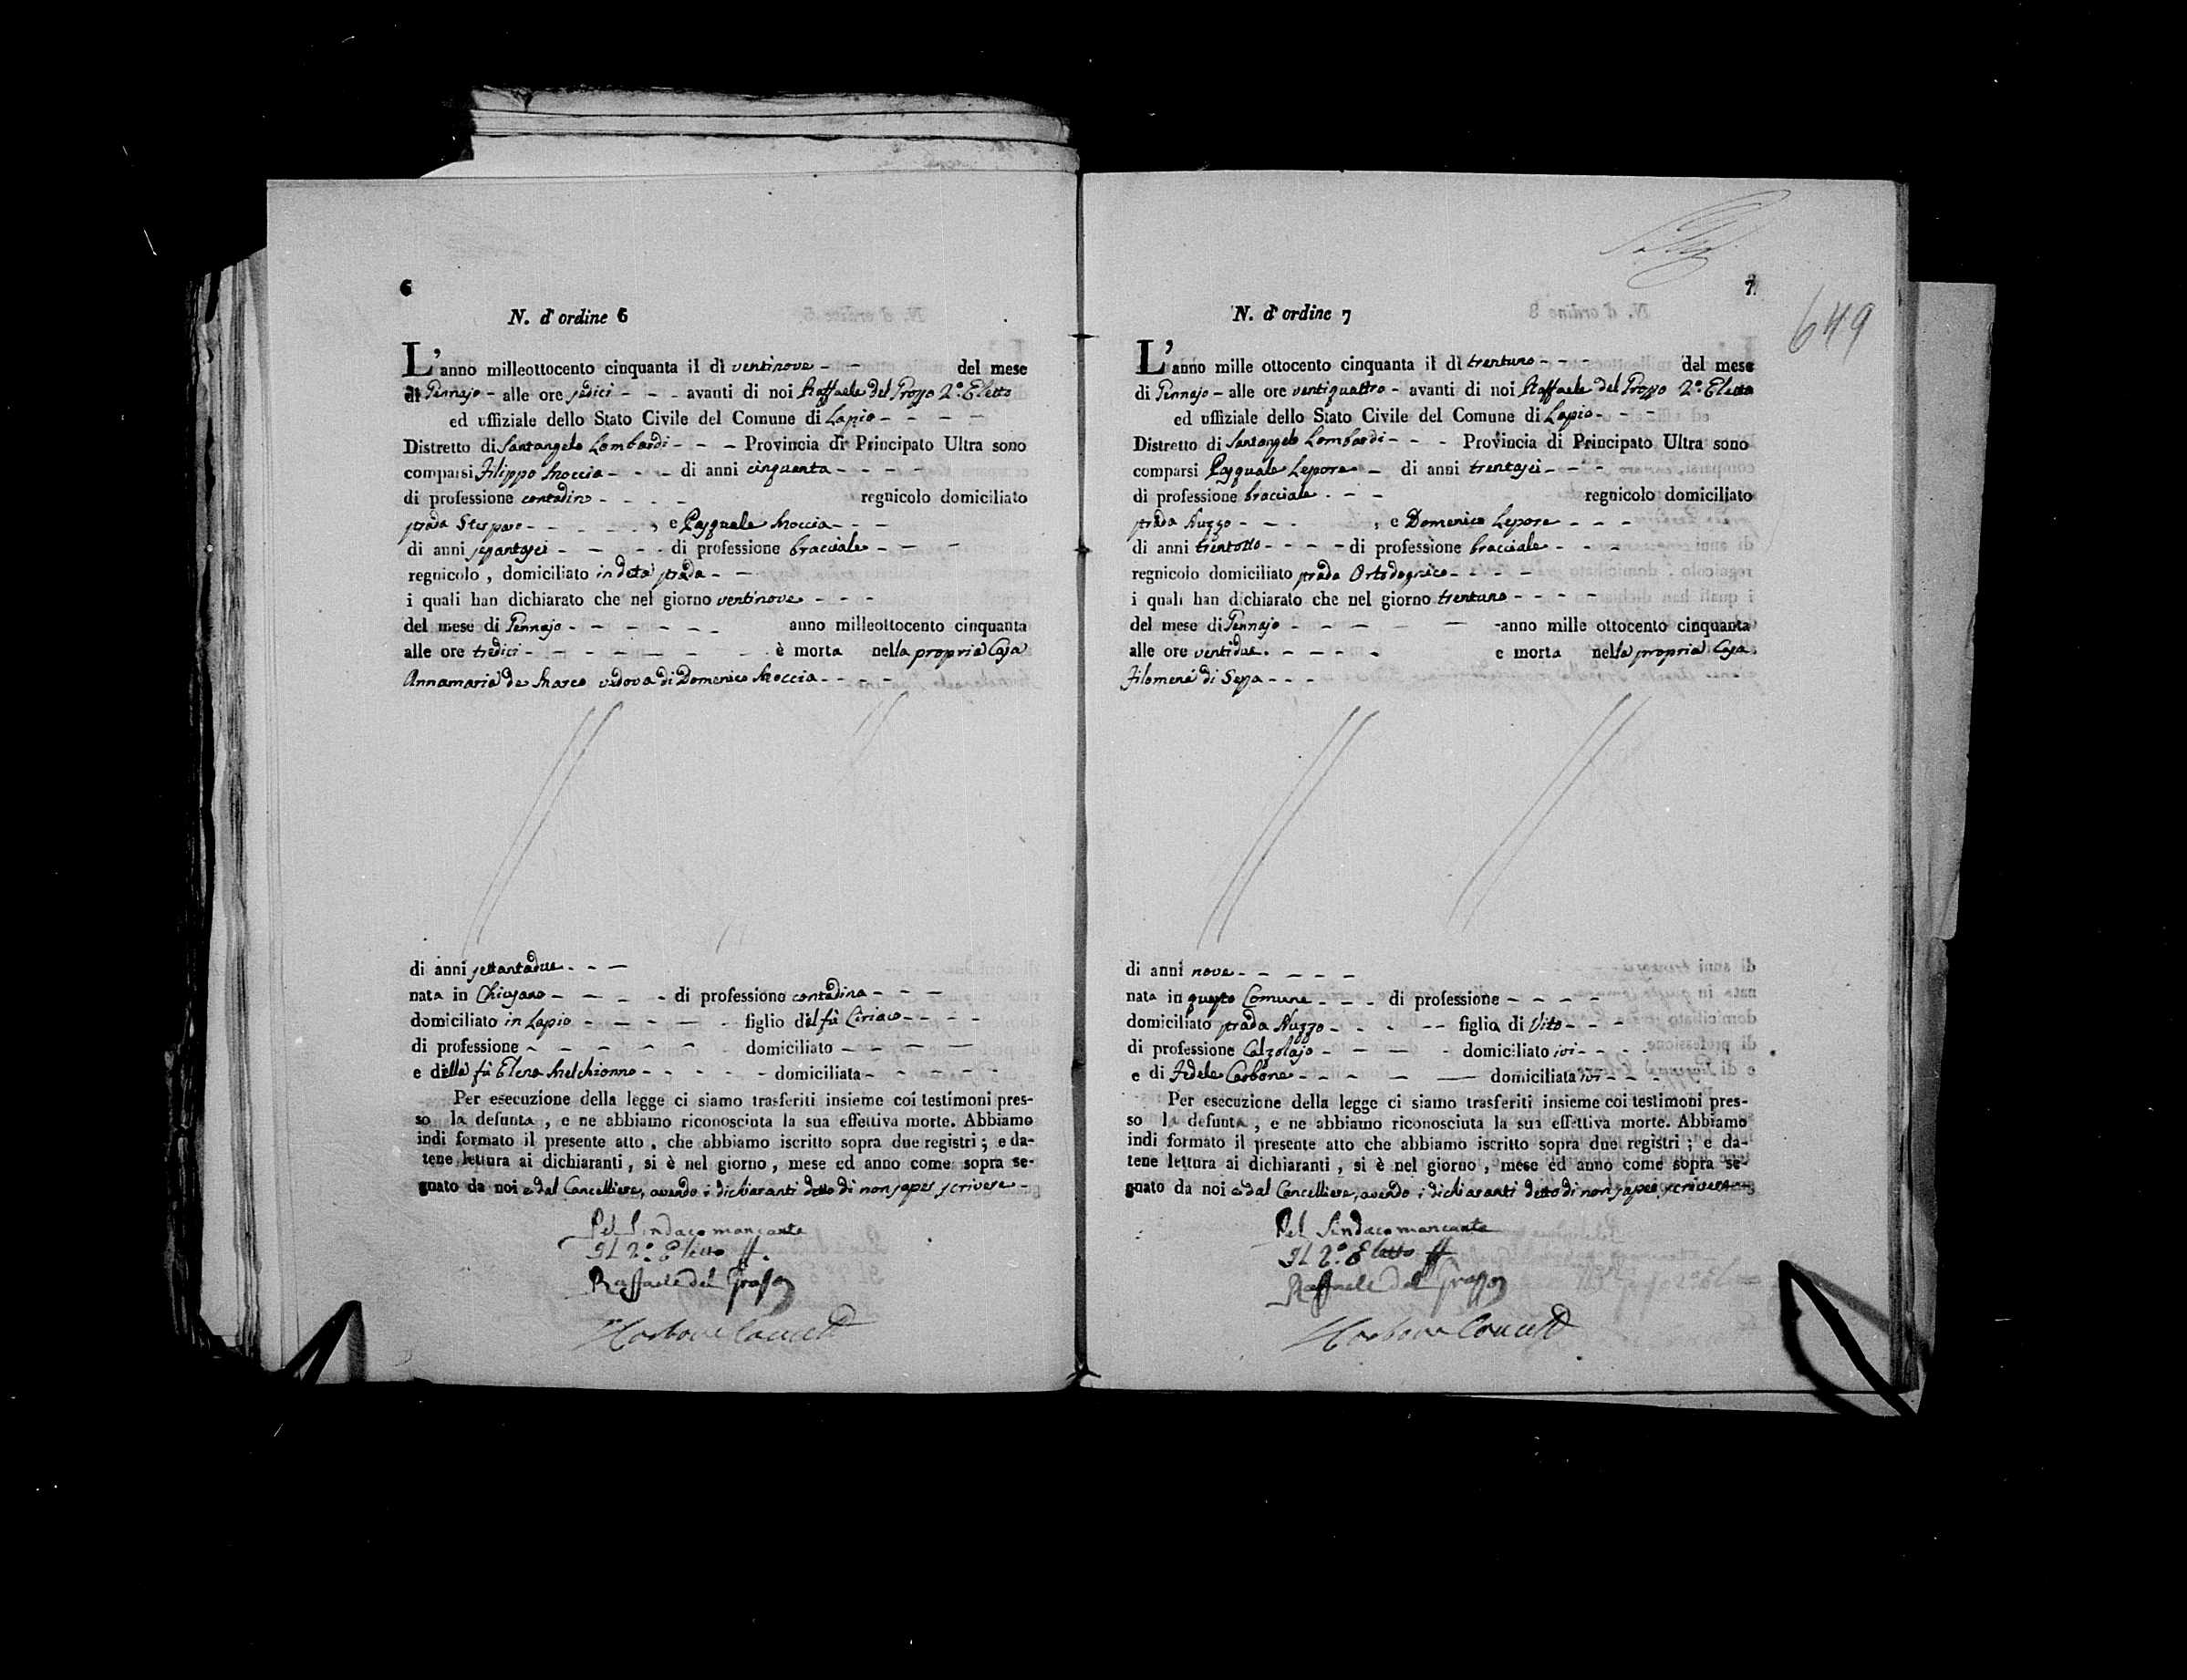 6
N. d'ordine 6
L'anno milleottocento cinquanta il dì ventinove - - del mese
di Gennajo - alle ore sedici - - - avanti di noi Raffaele del Grosso 2.º Eletto
ed uffiziale dello Stato Civile del Comune di Lapio - - - -
Distretto di Santangelo Lombardi - - - Provincia di Principato Ultra sono
comparsi Filippo Moccia - - - di anni cinquanta - - - -
di professione contadino - - - - regnicolo domiciliato
strada - - - - - , e Pasquale Moccia - - -
di anni sessantasei - - - - di professione bracciale - - -
regnicolo , domiciliato in detta strada - -
i quali han dichiarato che nel giorno ventinove - - -
del mese di Gennajo - - - - - - anno milleottocento cinquanta
alle ore tredici - - - - - - - è morta nella propria Casa
Annamaria de Marco vedova di Domenico Moccia - - - -
di anni settantadue - - -
nata in Chiusano - - - - - di professione contadina - - -
domiciliato in Lapio - - - - - figlio del fù Ciriaco - - - -
di professione - - - - - - domiciliato - - - - -
e della fù Elena Melchionno - - - - - domiciliata - - - - -
Per esecuzione della legge ci siamo trasferiti insieme coi testimoni pres-
so la defunta , e ne abbiamo riconosciuta la sua effettiva morte. Abbiamo
indi formato il presente atto , che abbiamo iscritto sopra due registri ; e da-
tene lettura ai dichiaranti , si è nel giorno , mese ed anno come sopra se-
gnato da noi e dal Cancelliere, avendo i dichiaranti detto di non saper scrivere -
Pel Sindaco mancante
Il 2.º Eletto ff.
Raffaele del Grosso
Carbone
7
649
N. d'ordine 7
L'anno mille ottocento cinquanta il dì trentuno - - - del mese
di Gennajo - alle ore ventiquattro - avanti di noi Raffaele del Grosso 2.º Eletto
ed uffiziale dello Stato Civile del Comune di Lapio - - -
Distretto di Santangelo Lombardi - - - Provincia di Principato Ultra sono
comparsi Pasquale Lepore - di anni trentasei - - -
di professione bracciale - - - regnicolo domiciliato
strada Nuzzo - - - , e Domenico Lepore - - -
di anni trentotto - - - - di professione bracciale - - -
regnicolo domiciliato strada - - - -
i quali han dichiarato che nel giorno trentuno - - - -
del mese di Gennajo - - - - - -anno mille ottocento cinquanta
alle ore ventidue - - - - - e morta nella propria Casa.
Filomena di Sessa - - -
di anni nove - - - - -
nata in questo Comune - - - di professione - - - -
domiciliato strada Nuzzo - - - - - figlia di Vito - - -
di professione Calzolajo - - - - domiciliato ivi - - -
e di Fedele Carbone - - - - - - domiciliata ivi - - -
Per esecuzione della legge ci siamo trasferiti insieme coi testimoni pres-
so la defunta , e ne abbiamo riconosciuta la sua effettiva morte. Abbiamo
indi formato il presente atto che abbiamo iscritto sopra due registri ; e da-
tene lettura ai dichiaranti , si è nel giorno , mese ed anno come sopra se-
gnato da noi e dal Cancelliere, avendo i dichiaranti detto di non saper scrivere -
Pel Sindaco mancante
Il 2.º Eletto ff
Raffaele del Grosso
Carbone